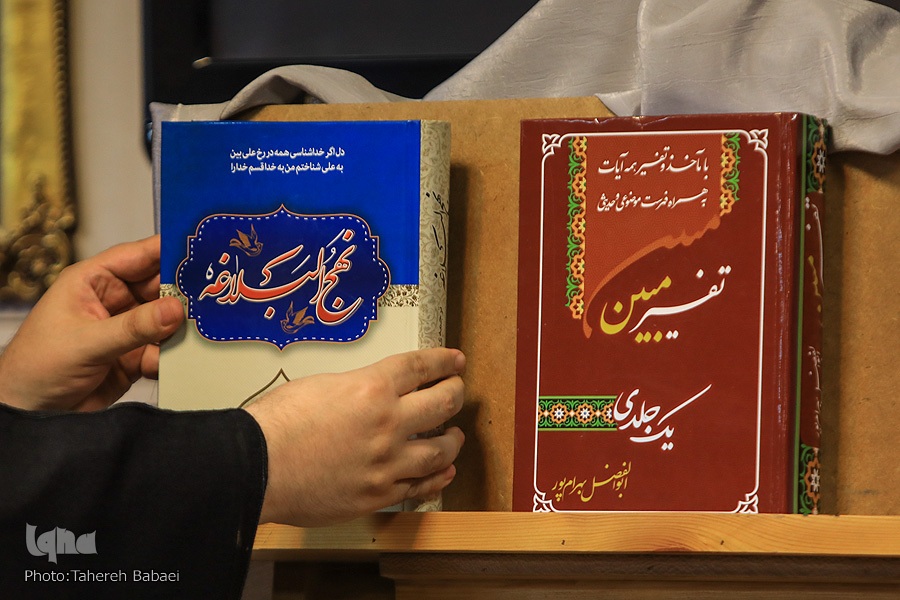 دل اگر خداشناسی همه در رخ علی بین
به علی شناختم من به خدا قسم خدا را
نهج البلاغه
با مآخذ و تفسیر همه آیات
به همراه فهرست موضوعی و حدیثی
مبین
تفسیر مبین
یک جلدی
ابوالفضل بهرام‌پور
iqna
Photo:Tahereh Babaei